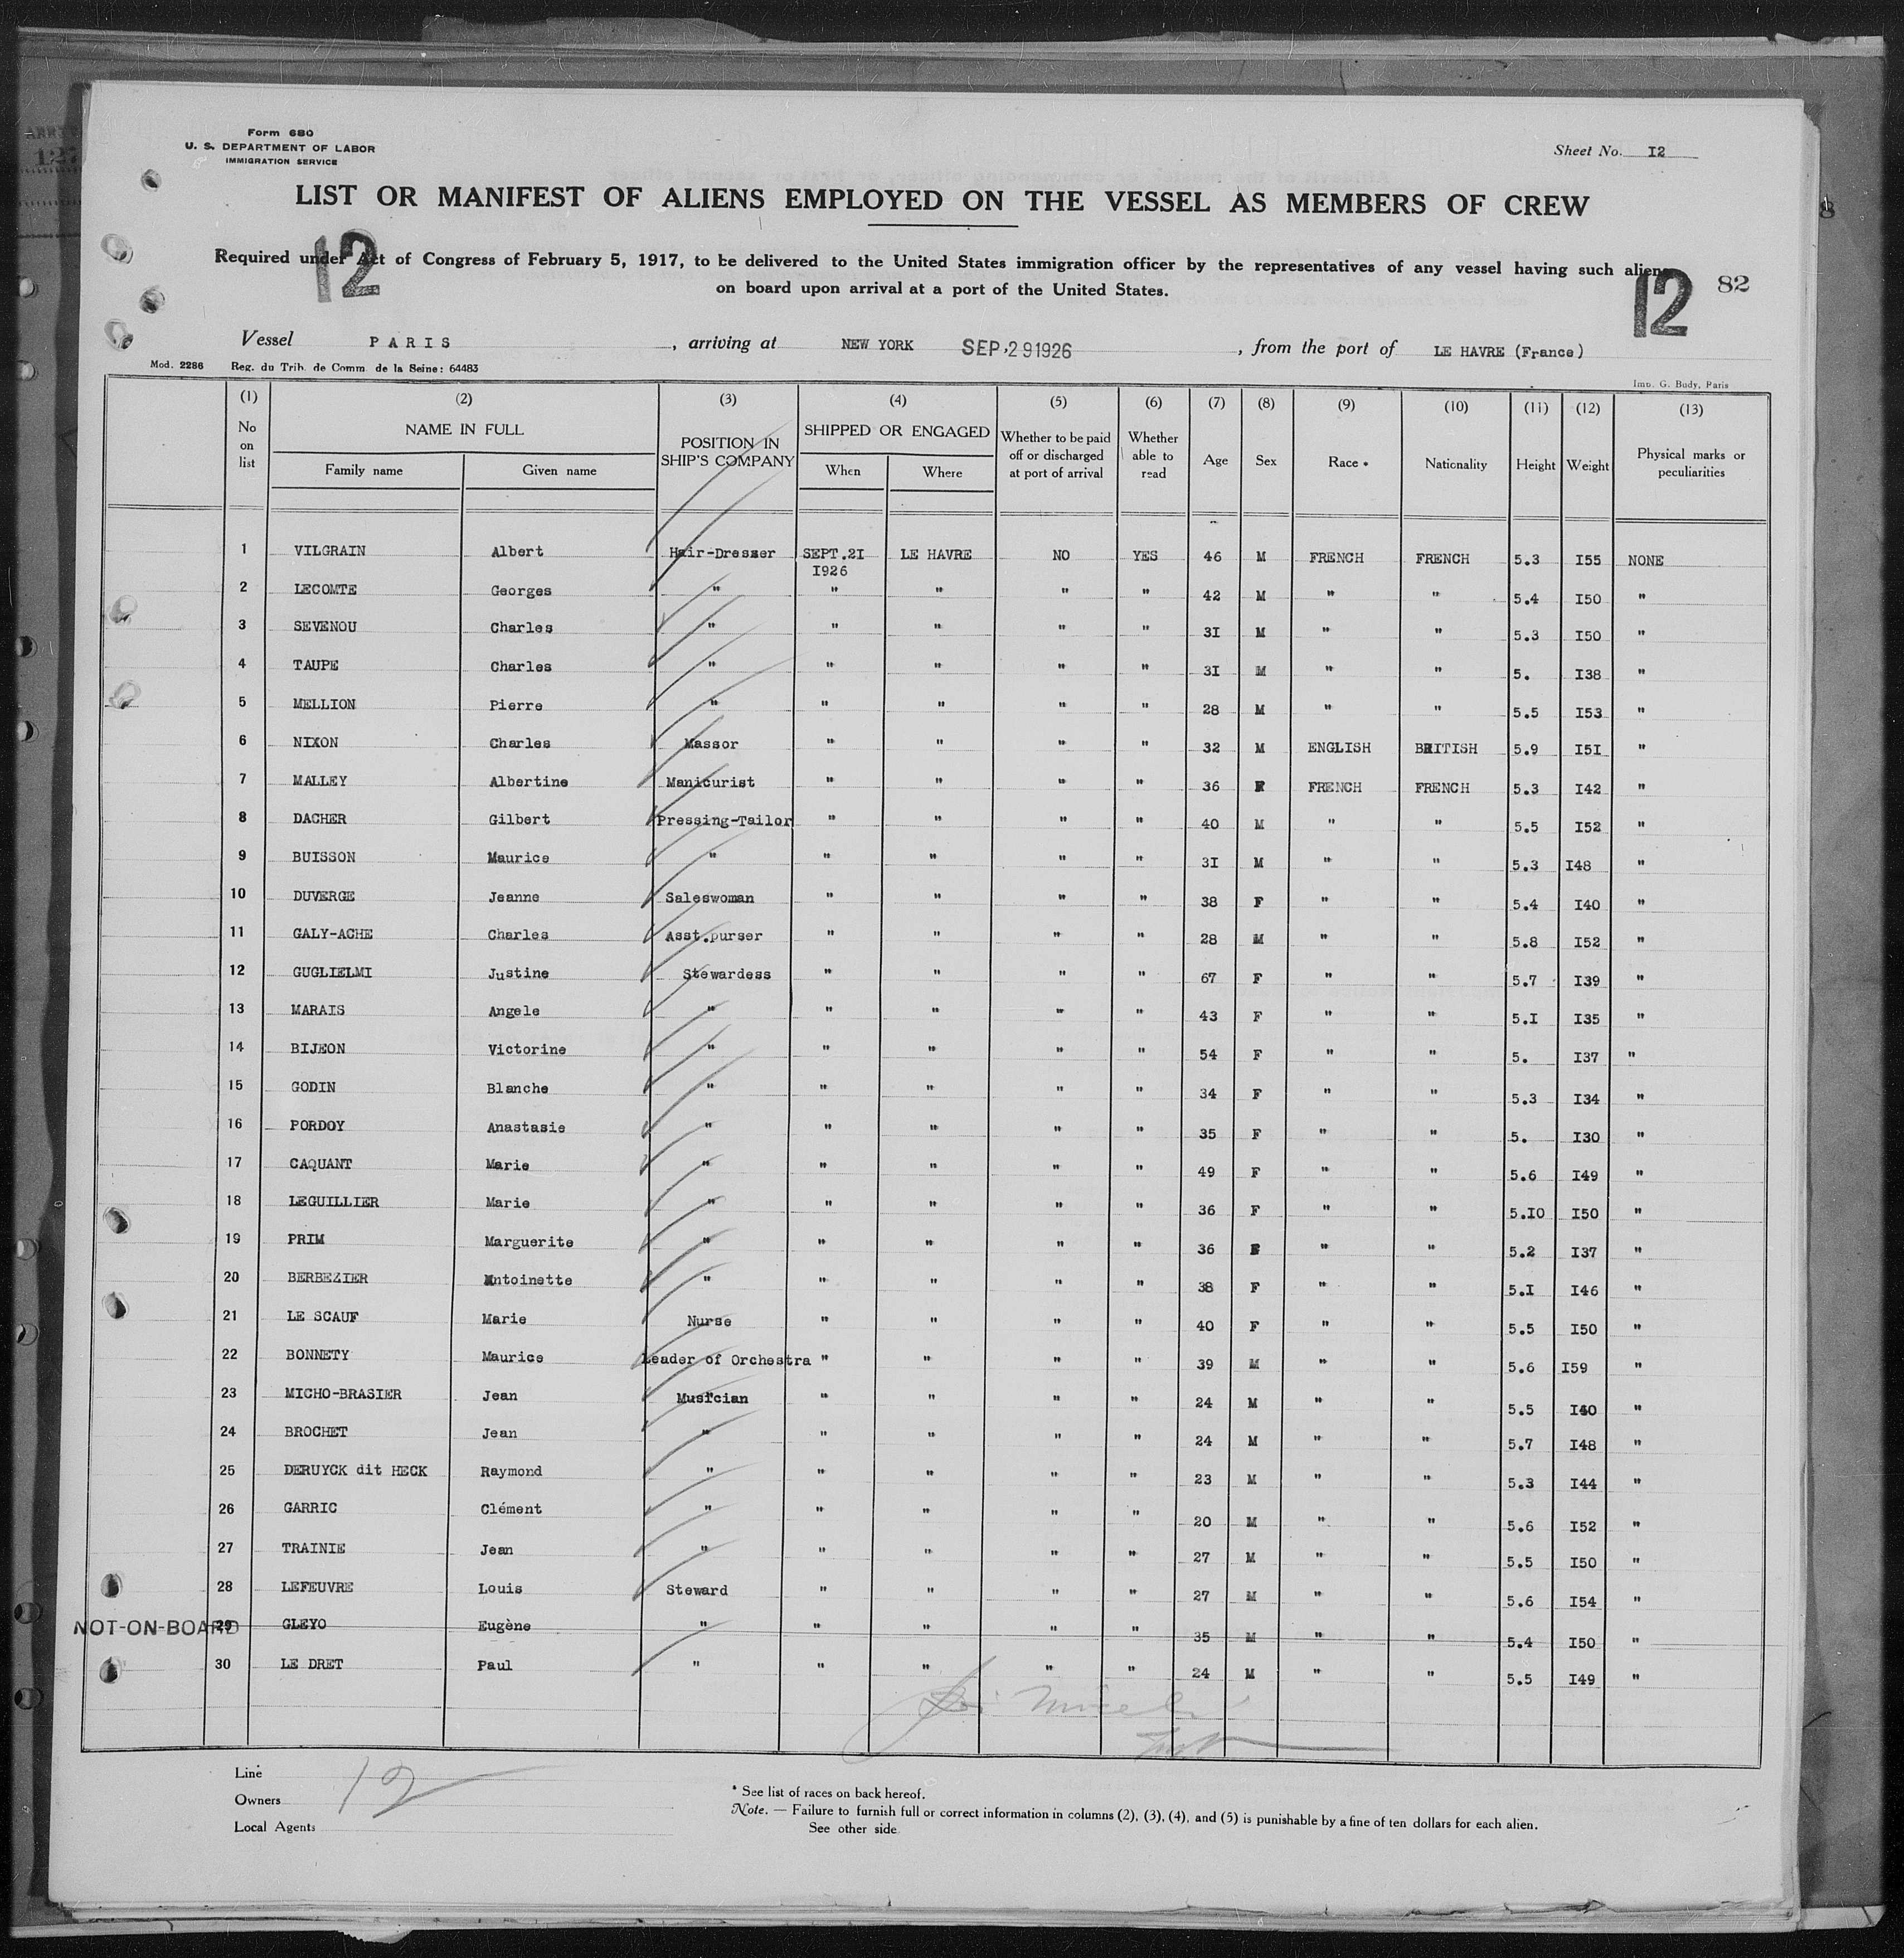 Form 680
U. S. DEPARTMENT OF LABOR
IMMIGRATION SERVICE
Sheet No. I2
LIST OR MANIFEST OF ALIENS EMPLOYED ON THE VESSEL AS MEMBERS OF CREW
12
Required under Act of Congress of February 5, 1917, to be delivered to the United States immigration officer by the representatives of any vessel having such aliens
on board upon arrival at a port of the United States.
12 82
Vessel PARIS, arriving at NEW YORK SEP. 29 1926, from the port of LE HAVRE (France)
Mod. 2286 Reg. du Trib. de Comm. de la Seine: 64483
Imp. G. Budy, Paris
(1) (2) (3) (4) (5) (6) (7) (8) (9) (10) (11) (12) (13)
No on list NAME IN FULL Family name Given name POSITION IN SHIP'S COMPANY SHIPPED OR ENGAGED When Where Whether to be paid off or discharged at port of arrival Whether able to read Age Sex Race * Nationality Height Weight Physical marks or peculiarities
1 VILGRAIN Albert Hair-Dresser SEPT.2I I926 LE HAVRE NO YES 46 M FRENCH FRENCH 5.3 I55 NONE
2 LECOMTE Georges " " " " " 42 M " " 5.4 I50 "
3 SEVENOU Charles " " " " " 3I M " " 5.3 I50 "
4 TAUPE Charles " " " " " 3I M " " 5. I38 "
5 MELLION Pierre " " " " " 28 M " " 5.5 I53 "
6 NIXON Charles Massor " " " " 32 M ENGLISH BRITISH 5.9 I5I "
7 MALLEY Albertine Manicurist " " " " 36 F FRENCH FRENCH 5.3 I42 "
8 DACHER Gilbert Pressing-Tailor " " " " 40 M " " 5.5 I52 "
9 BUISSON Maurice " " " " " 3I M " " 5.3 I48 "
10 DUVERGE Jeanne Saleswoman " " " " 38 F " " 5.4 I40 "
11 GALY-ACHE Charles Asst.purser " " " " 28 M " " 5.8 I52 "
12 GUGLIELMI Justine Stewardess " " " " 67 F " " 5.7 I39 "
13 MARAIS Angele " " " " " 43 F " " 5.I I35 "
14 BIJEON Victorine " " " " " 54 F " " 5. I37 "
15 GODIN Blanche " " " " " 34 F " " 5.3 I34 "
16 PORDOY Anastasie " " " " " 35 F " " 5. I30 "
17 CAQUANT Marie " " " " " 49 F " " 5.6 I49 "
18 LEGUILLIER Marie " " " " " 36 F " " 5.I0 I50 "
19 PRIM Marguerite " " " " " 36 F " " 5.2 I37 "
20 BERBEZIER Antoinette " " " " " 38 F " " 5.I I46 "
21 LE SCAUF Marie Nurse " " " " 40 F " " 5.5 I50 "
22 BONNETY Maurice Leader of Orchestra " " " " 39 M " " 5.6 I59 "
23 MICHO-BRASIER Jean Musician " " " " 24 M " " 5.5 I40 "
24 BROCHET Jean " " " " " 24 M " " 5.7 I48 "
25 DERUYCK dit HECK Raymond " " " " " 23 M " " 5.3 I44 "
26 GARRIC Clément " " " " " 20 M " " 5.6 I52 "
27 TRAINIE Jean " " " " " 27 M " " 5.5 I50 "
28 LEFEUVRE Louis Steward " " " " 27 M " " 5.6 I54 "
NOT-ON-BOARD 29 GLEYO Eugène " " " " " 35 M " " 5.4 I50 "
30 LE DRET Paul " " " " " 24 M " " 5.5 I49 "
Line
Owners
Local Agents
12
* See list of races on back hereof.
Note. — Failure to furnish full or correct information in columns (2), (3), (4), and (5) is punishable by a fine of ten dollars for each alien.
See other side